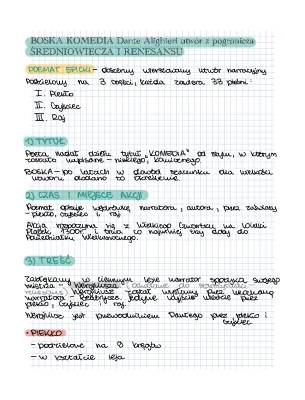 BOSKA KOMEDIA Dante Alighieri utwór z pogranicza
ŚREDNIOWIECZA I RENESANSU
POEMAT EPICKI - obszerny wierszowany utwór narracyjny
Podzielony na 3 części, każda zawiera 33 pieśni:
I. Piekło
II. Czyściec
III. Raj
1) TYTUŁ
Poeta nadał dziełu tytuł "KOMEDIA" od stylu, w którym
zostało napisane - niskiego, komicznego.
BOSKA - po latach w dowód szacunku dla wielkości
utworu dodano to określenie.
2) CZAS I MIEJSCE AKCJI
Poemat opisuje wędrówkę narratora, autora, przez zaświaty
- piekło, czyściec i raj.
Akcja rozpoczyna się z Wielkiego Czwartku na Wielki
Piątek 1300r i trwa co najmniej trzy doby do
Poniedziałku Wielkanocnego.
3) TREŚĆ
Zabłąkany w ciemnym lesie narrator spotyka swojego
mistrza - Wergiliusza
Wergiliusz został wysłany przez ukochaną
narratora - Beatrycze. Jedyne wyjście wiedzie przez
piekło, czyściec i raj.
Wergiliusz jest przewodnikiem Dantego przez piekło i
czyściec
• PIEKŁO
- podzielone na 9 kręgów
- w kształcie leja